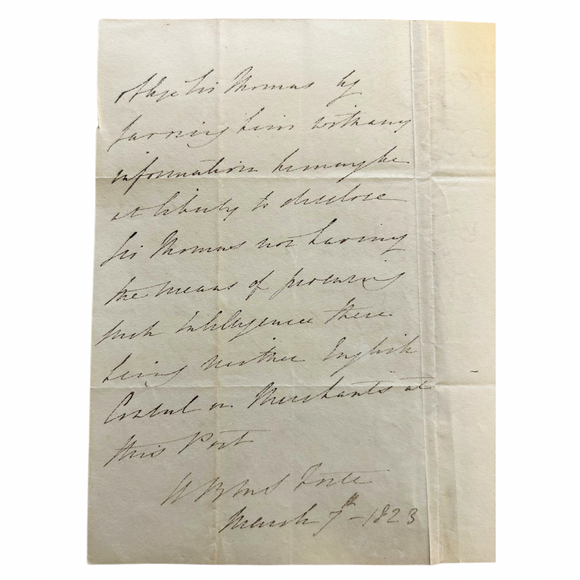 oblige Sir Thomas by
favoring him with any
information he may be
at liberty to disclose
Sir Thomas not having
the means of procuring
such Intelligence there
being neither English
Consul or Merchants at
this Port
March 7th - 1823